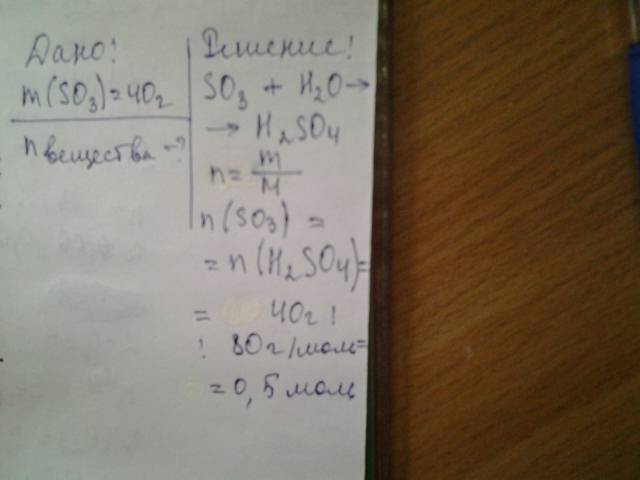 Дано!
m(SO₃)=40г
n вещества -?
Решение!
SO₃ + H₂O→
→ H₂SO₄
n= m/M
n(SO₃) =
= n(H₂SO₄)=
= 40г :
: 80г/моль=
= 0,5 моль